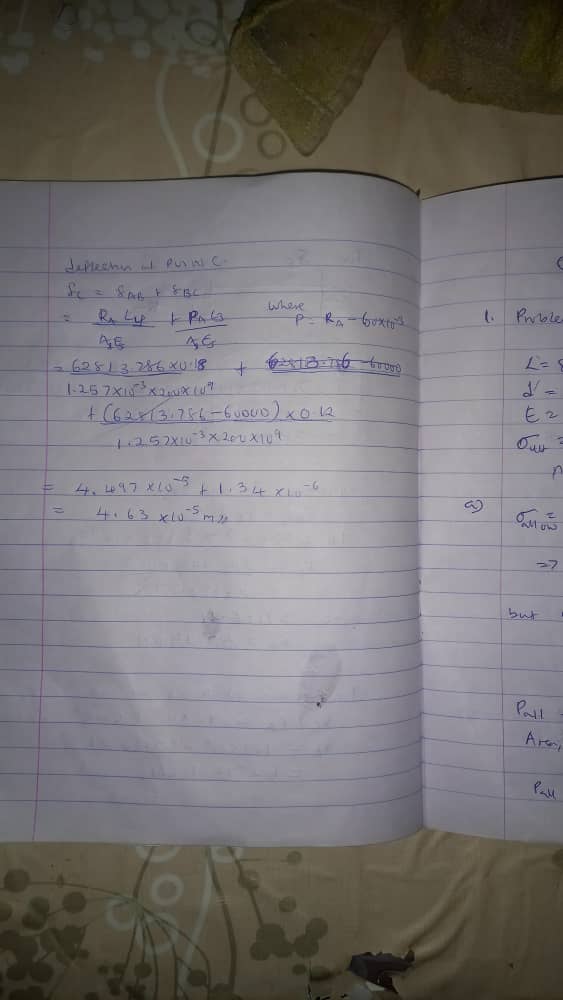 deflection at Point C.
δC = δAB + δBC
= RA L4 / As Es + PA L3 / As Es where P = RA - 60x10^-3
= 62813.786 x 0.18 / 1.257x10^-3 x 200x10^9 + 62813.786 - 60000
+ (62813.786 - 60000) x 0.12 / 1.257x10^-3 x 200x10^9
= 4.497 x10^-5 + 1.34 x10^-6
= 4.63 x10^-5 m //
1. Proble
L = 8
d =
E =
σult =
a) σallow =
=>
but
Pall
Area,
Pall